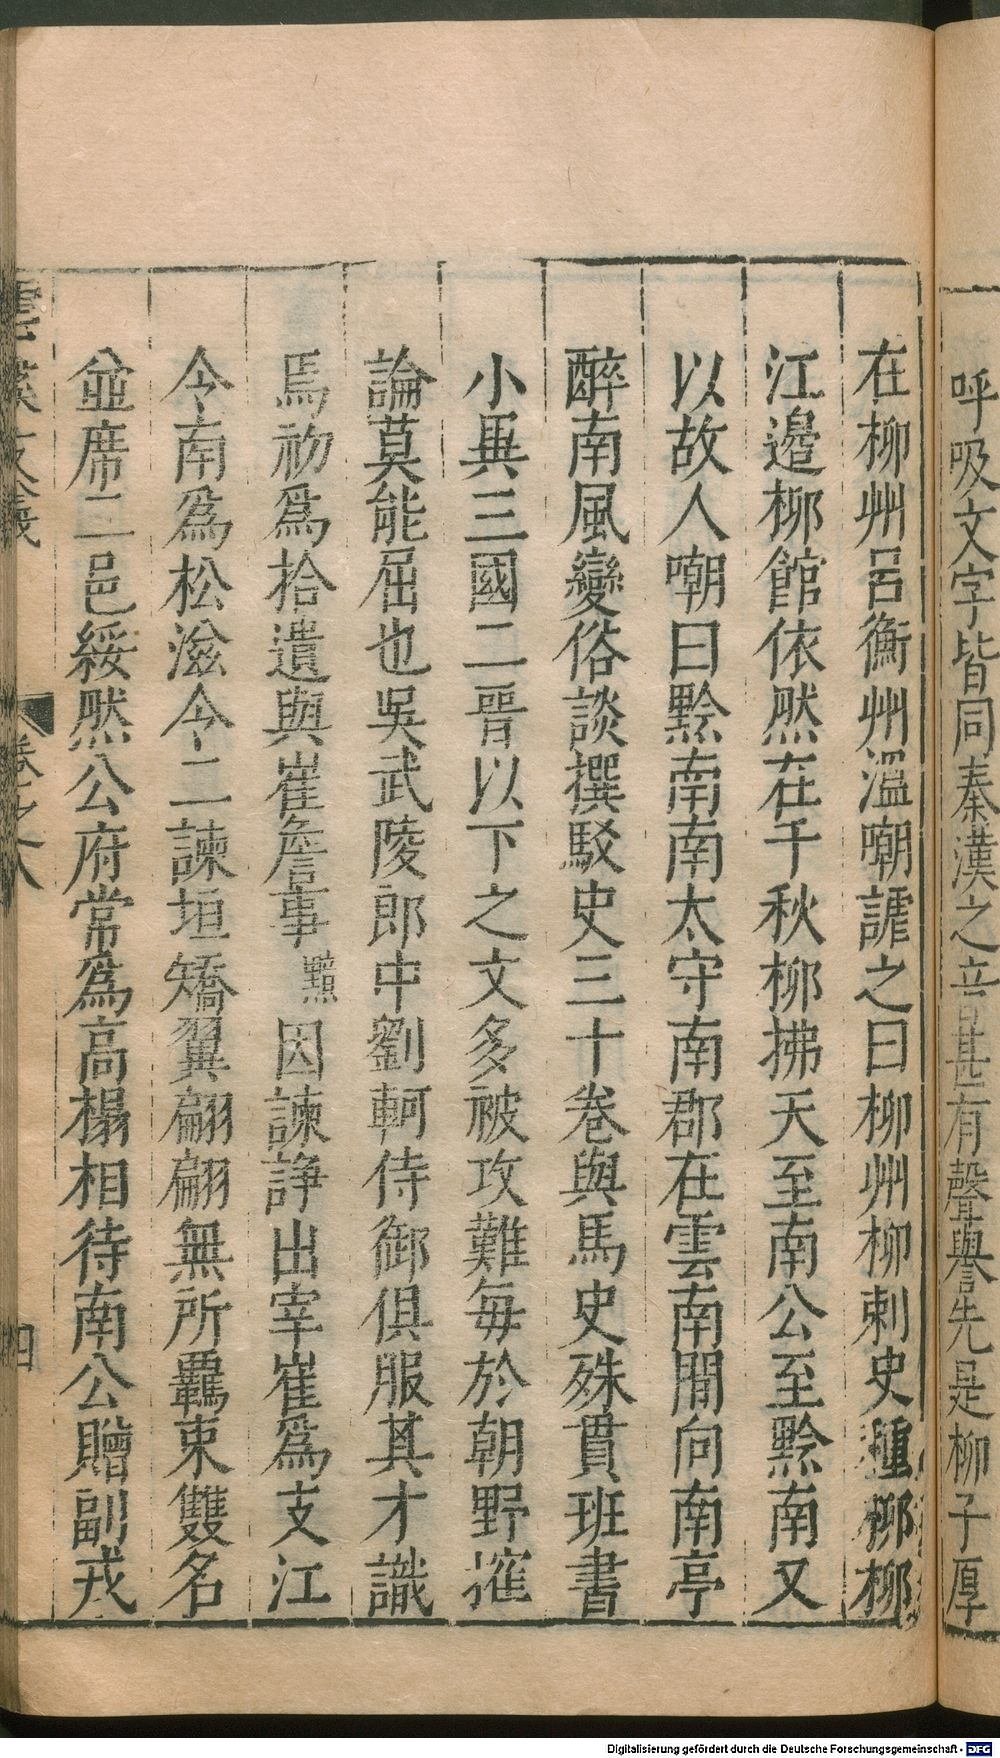 呼吸文字皆同秦漢之音甚有聲譽先是柳子厚
在柳州呂衡州溫嘲謔之曰柳州柳刺史種柳柳
江邊柳館依然在千秋柳拂天至南公至黔南又
以故人嘲曰黔南南太守南郡在雲南閒向南亭
醉南風變俗談撰駁史三十卷與馬史殊貫班書
小異三國二晉以下之文多被攻難每於朝野摧
論莫能屈也吳武陵郎中劉軻侍御俱服其才識
焉初爲拾遺與崔詹事黯因諫諍出宰崔爲支江
令南爲松滋令二諫垣矯翼翩翩無所羈束雙名
並席二邑綏然公府常爲高榻相待南公贈副戎
雲溪友議 卷之六 四
Digitalisierung gefördert durch die Deutsche Forschungsgemeinschaft - DFG